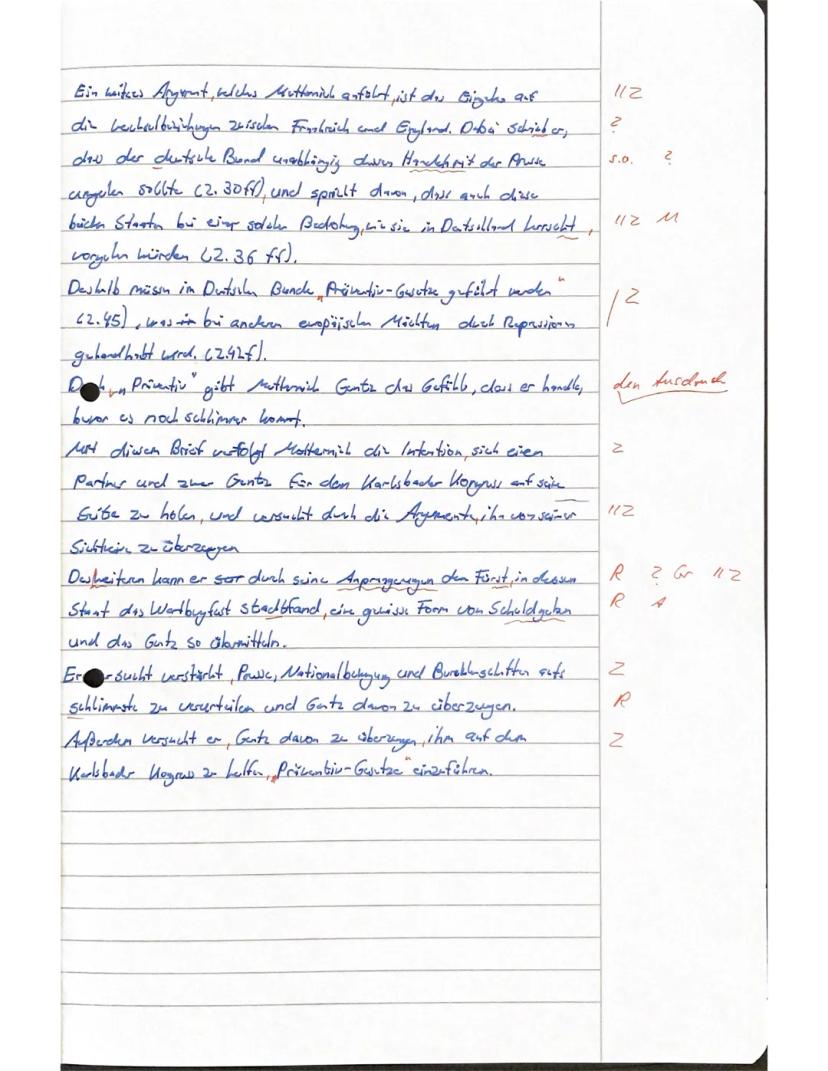 Ein weiteres Argument, welches Metternich anführt, ist das Eingehen auf 11Z
die Wechselbeziehungen zwischen Frankreich und England. Dabei schrieb er, ?
dass der deutsche Bund unabhängig davon mit der Presse s.o. ?
umgehen sollte (Z. 30ff), und spricht davon, dass auch diese
beiden Staaten bei einer solchen Bedrohung, wie sie in Deutschland herrscht, 11Z M
vorgehen würden (Z. 36 ff).
Deshalb müssen im Deutschen Bunde „Präventiv-Gesetze geführt werden" |Z
(Z.45), was bei anderen europäischen Mächten durch Repressionen
gehandhabt wird. (Z.42f).
„Präventiv" gibt Metternich Gentz das Gefühl, dass er handle, den Ausdruck
bevor es noch schlimmer kommt.
Mit diesem Brief verfolgt Metternich die Intention, sich einen Z
Partner und zwar Gentz für dem Karlsbader Kongress auf seine
Seite zu holen, und versucht durch die Argumente, ihn von seiner 11Z
Sichtweise zu überzeugen
Desweiteren kann er durch seine den Fürst, in dessen R ? Gr 11Z
Staat das Wartburgfest stadtfand, eine gewisse Form von Schuld geben R A
und das Gentz so übermitteln.
Er versucht verstärkt, Presse, Nationalbewegung und Burschenschaften aufs Z
schlimmste zu verurteilen und Gentz davon zu überzeugen. R
Außerdem versucht er, Gentz davon zu überzeugen, ihm auf dem Z
Karlsbader Kogress zu helfen, „Präventiv-Gesetze" einzuführen.